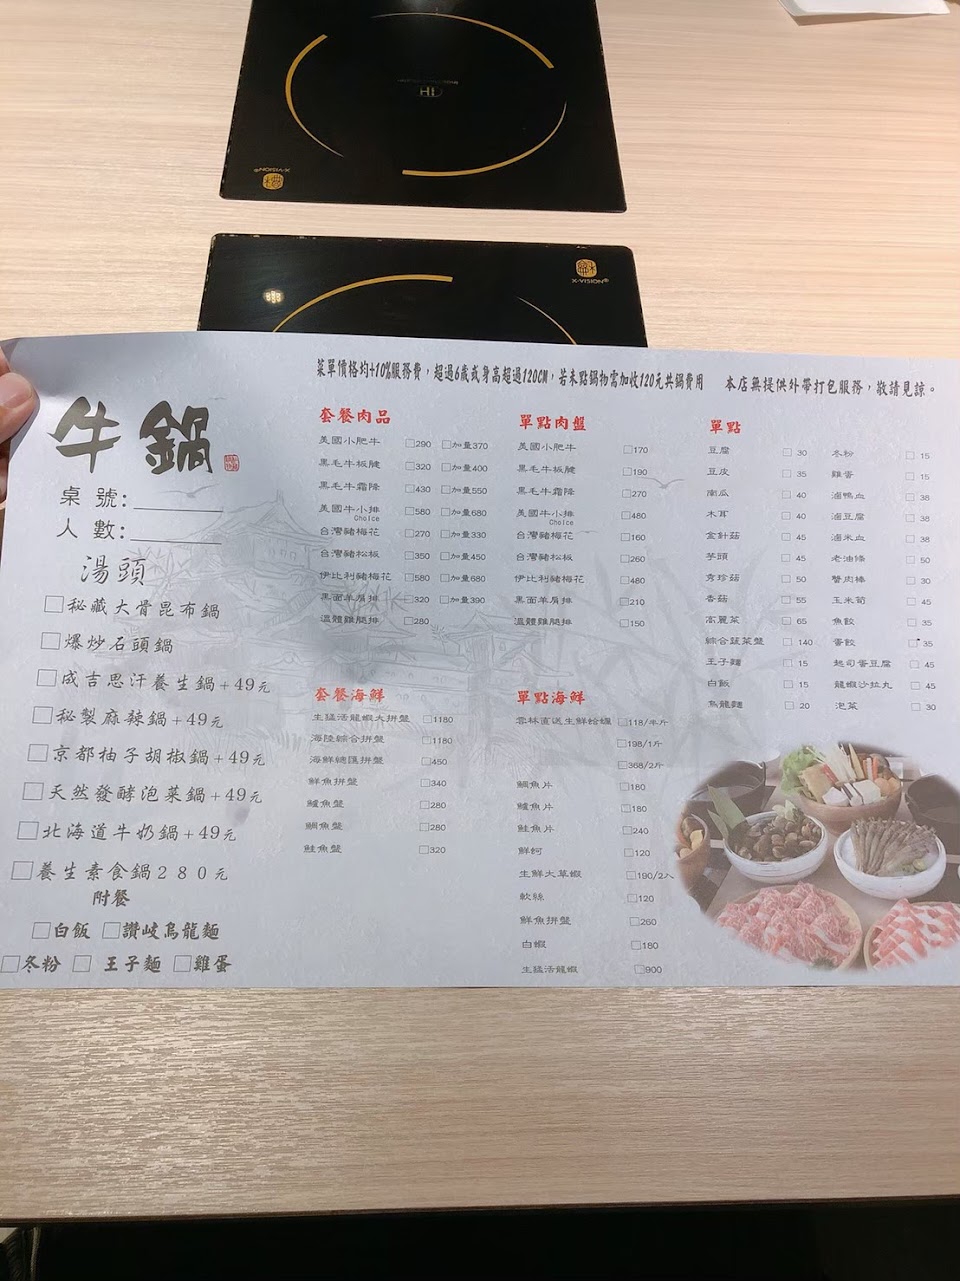 X-VISION®
X-VISION®
菜單價格均+10%服務費，超過6歲或身高超過120CM，若未點鍋物需加收120元共鍋費用　本店無提供外帶打包服務，敬請見諒。
牛鍋
桌號:
人數:
湯頭
□秘藏大骨昆布鍋
□爆炒石頭鍋
□成吉思汗養生鍋+49元
□秘製麻辣鍋+49元
□京都柚子胡椒鍋+49元
□天然發酵泡菜鍋+49元
□北海道牛奶鍋+49元
□養生素食鍋280元
附餐
□白飯 □讚岐烏龍麵
□冬粉 □王子麵 □雞蛋
套餐肉品
美國小肥牛 □290 □加量370
黑毛牛板腱 □320 □加量400
黑毛牛霜降 □430 □加量550
美國牛小排 □580 □加量680
Choice
台灣豬梅花 □270 □加量330
台灣豬松板 □350 □加量450
伊比利豬梅花 □580 □加量680
黑面羊肩排 □320 □加量390
溫體雞腿排 □280
套餐海鮮
生猛活龍蝦大拼盤 □1180
海陸綜合拼盤 □1180
海鮮總匯拼盤 □450
鮮魚拼盤 □340
鱸魚盤 □280
鯛魚盤 □280
鮭魚盤 □320
單點肉盤
美國小肥牛 □170
黑毛牛板腱 □190
黑毛牛霜降 □270
美國牛小排 □480
Choice
台灣豬梅花 □160
台灣豬松板 □260
伊比利豬梅花 □480
黑面羊肩排 □210
溫體雞腿排 □150
單點海鮮
雲林直送生鮮蛤蠣 □118/半斤
□198/1斤
□368/2斤
鯛魚片 □180
鱸魚片 □180
鮭魚片 □240
鮮蚵 □120
生鮮大草蝦 □190/2入
軟絲 □120
鮮魚拼盤 □260
白蝦 □180
生猛活龍蝦 □900
單點
豆腐 □30
豆皮 □35
南瓜 □40
木耳 □40
金針菇 □45
芋頭 □45
秀珍菇 □50
香菇 □55
高麗菜 □65
綜合蔬菜盤 □140
王子麵 □15
白飯 □15
烏龍麵 □20
冬粉 □15
雞蛋 □15
滷鴨血 □38
滷豆腐 □38
滷米血 □38
老油條 □50
蟹肉棒 □30
玉米筍 □45
魚餃 □35
蛋餃 □35
起司蛋豆腐 □45
龍蝦沙拉丸 □45
泡菜 □30